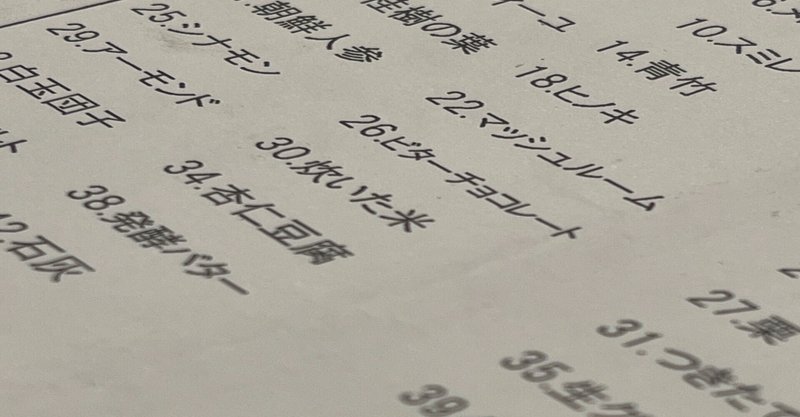 25.シナモン
29.アーモンド
白玉団子
朝鮮人参
桂樹の葉
10.スミレ
14.青竹
18.ヒノキ
22.マッシュルーム
26.ビターチョコレート
30.炊いた米
34.杏仁豆腐
38.発酵バター
石灰
27.栗
31.つきたて
35.生ク
39